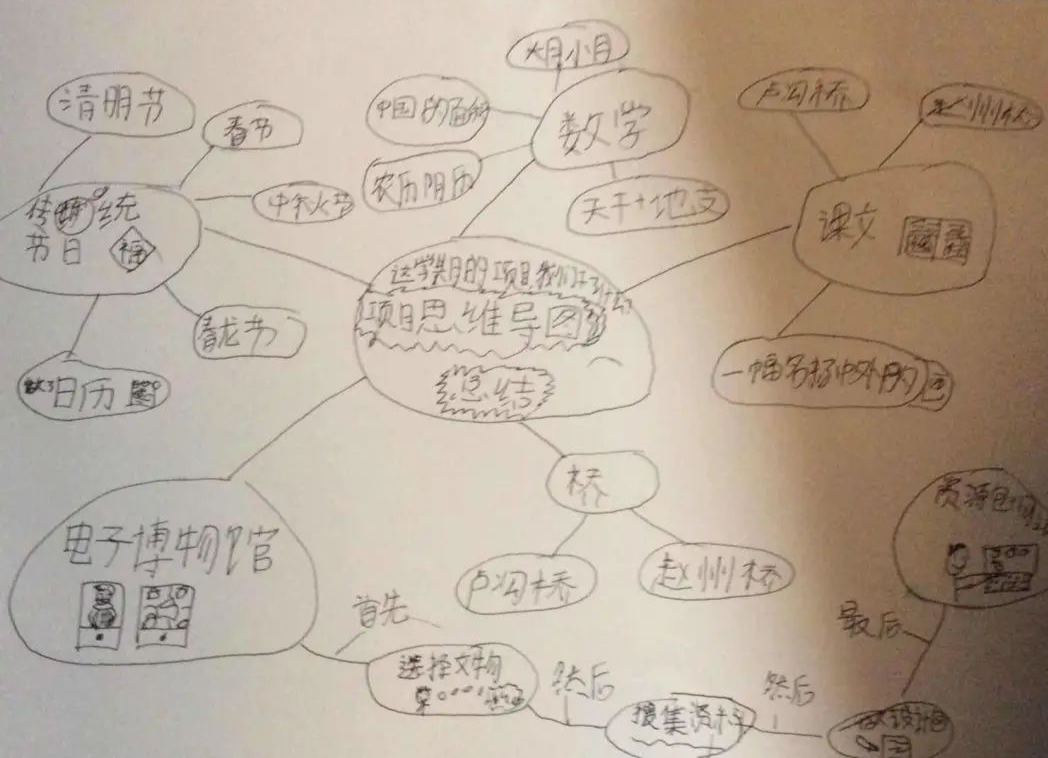 大月小月
清明节
春节
中国的面积
卢沟桥
赵州桥
数学
农历阴历
中秋节
天干+地支
传统
节日
福
课文
这学期的项目我们
项目思维导图
总结
春龙节
日历
一幅名扬中外的画
桥
电子博物馆
卢沟桥
赵州桥
资源
首先
选择文物
然后
搜集资料
然后
做设计图
最后